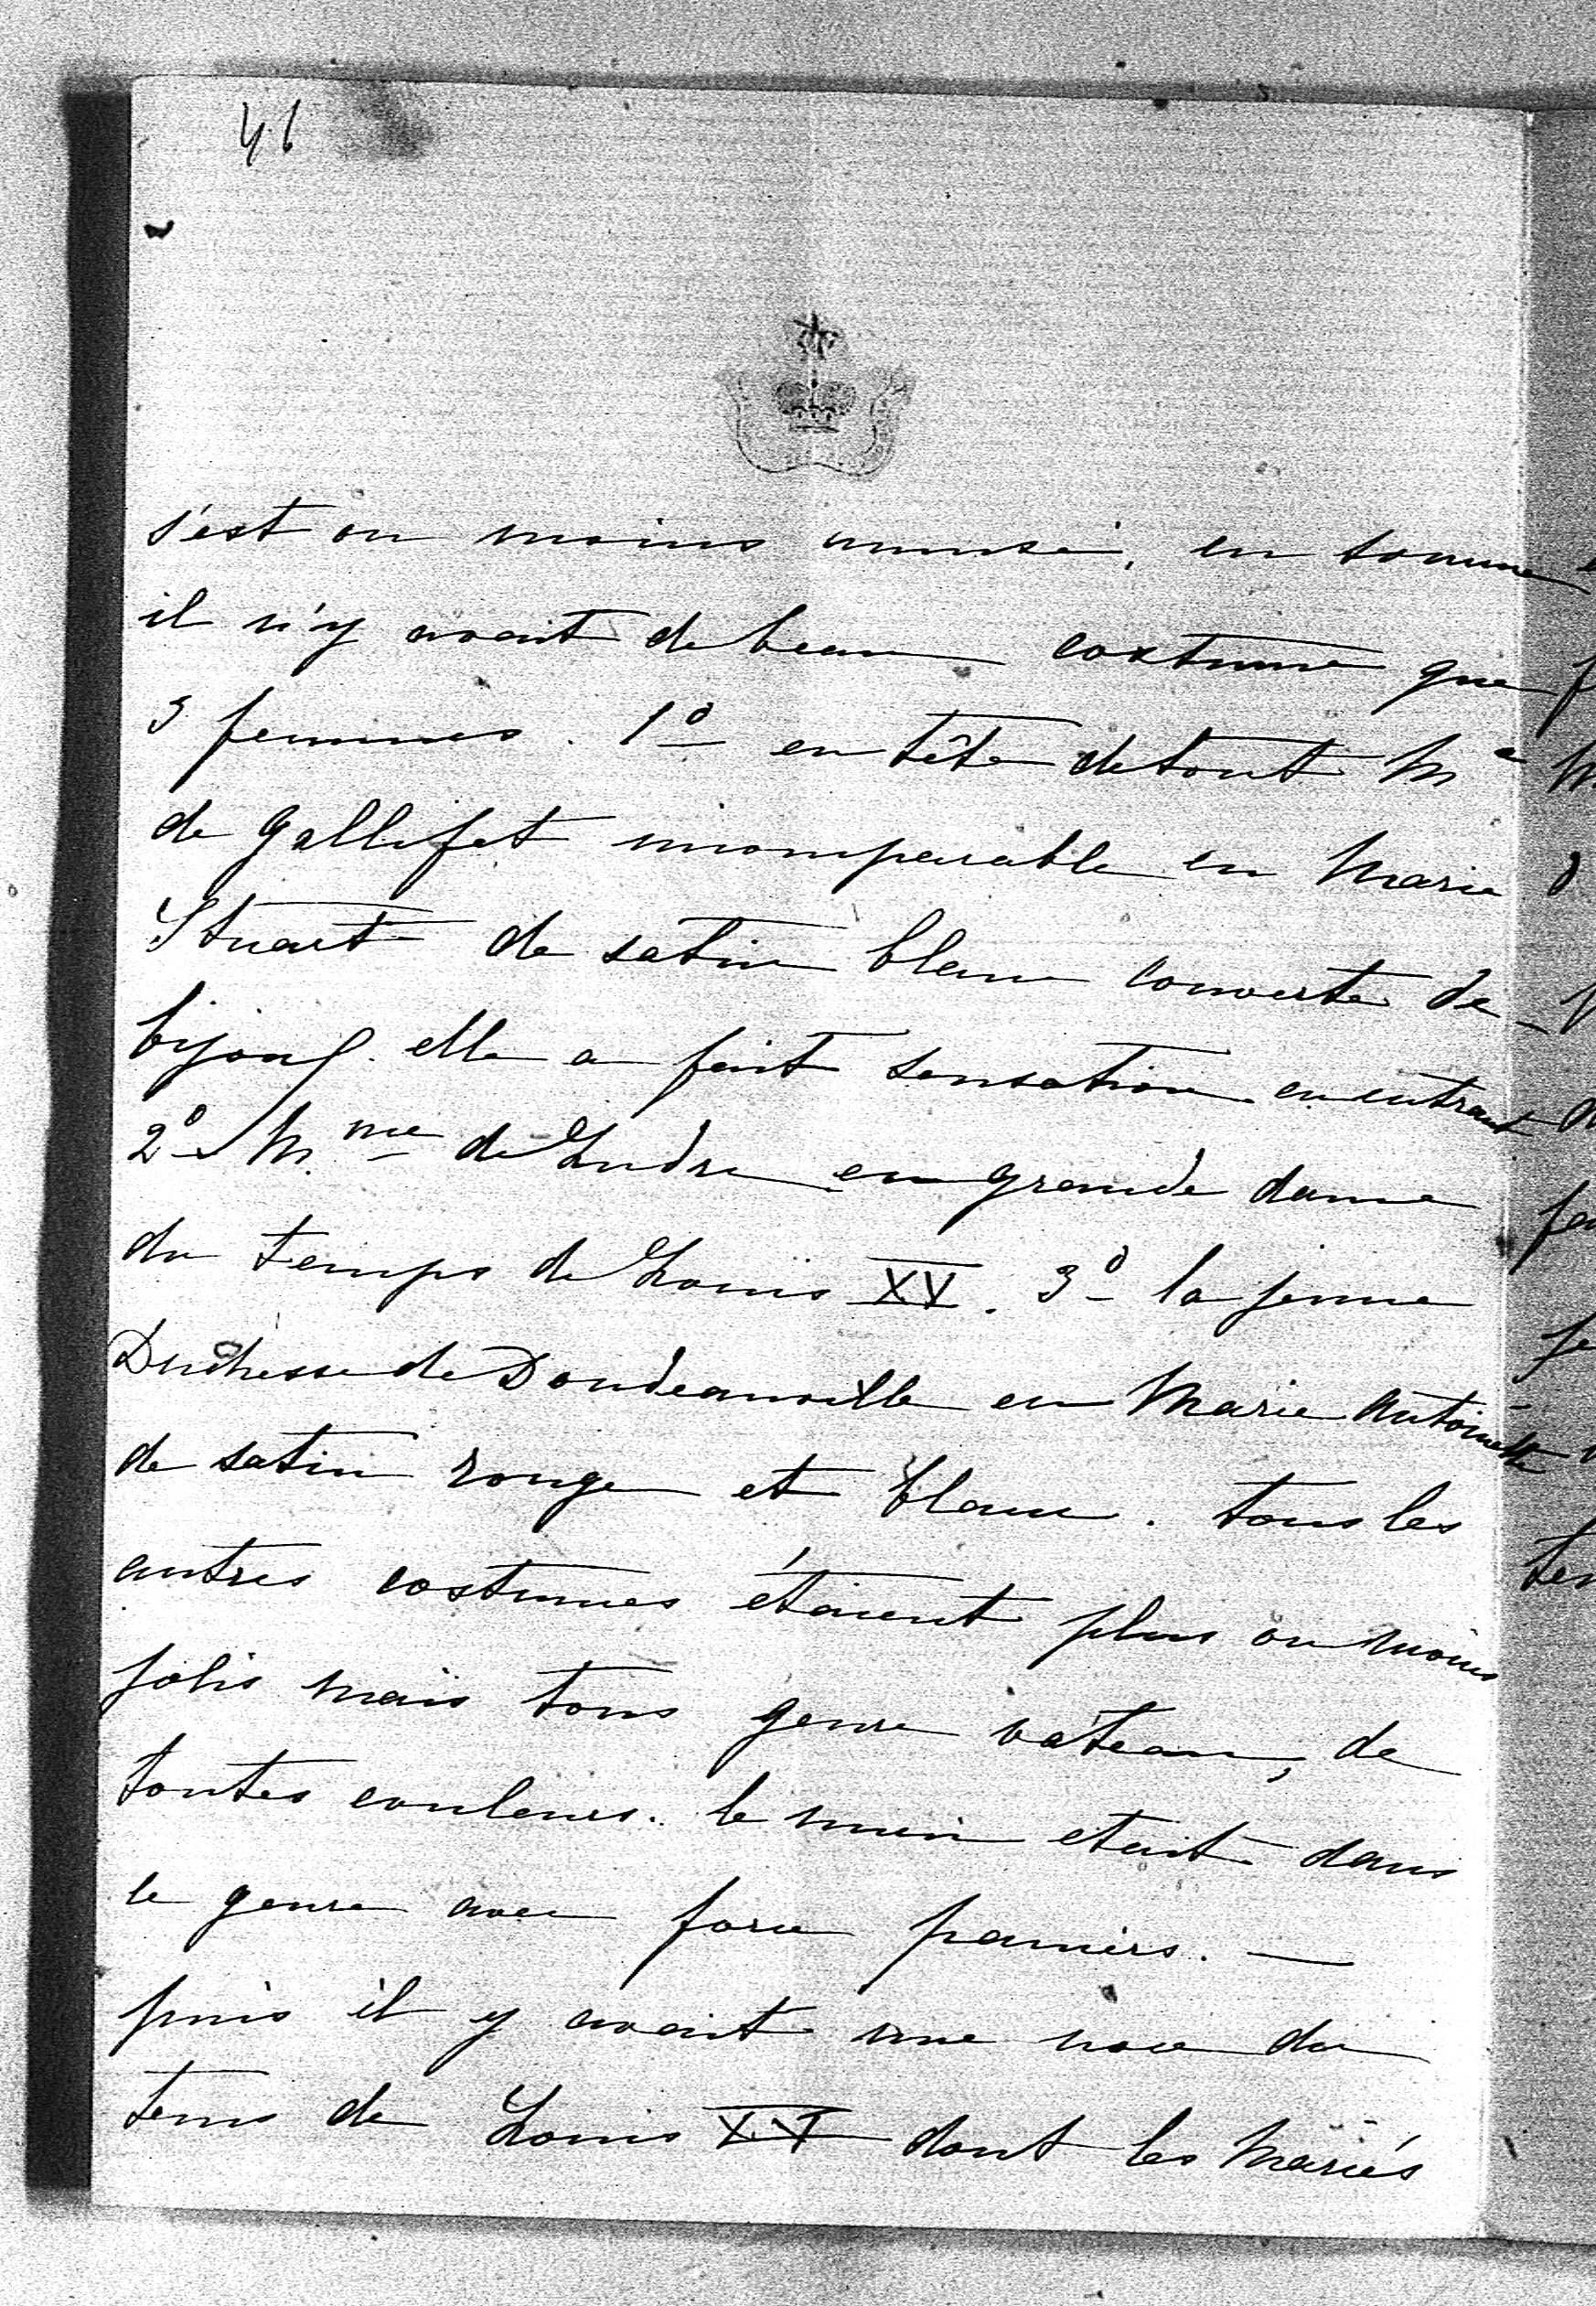 46
s'est on moins amusé, en somme
il n'y avait de beau costume que
3 femmes. 1º en tête de tout Me
de Gallifet incomparable en Marie
Stuart de satin blanc couverte de
bijoux. elle a fait sensation en entrant
2º Mme de Ludre en grande dame
du temps de Louis XV. 3º la jeune
Duchesse de Doudeauville en Marie Antoinette
de satin rouge et blanc. tous les
autres costumes étaient plus ou moins
jolis mais tous genre vateau, de
toutes couleurs. le mien etait dans
le genre avec force paniers. —
puis il y avait une noce du
tems de Louis XV dont les mariés